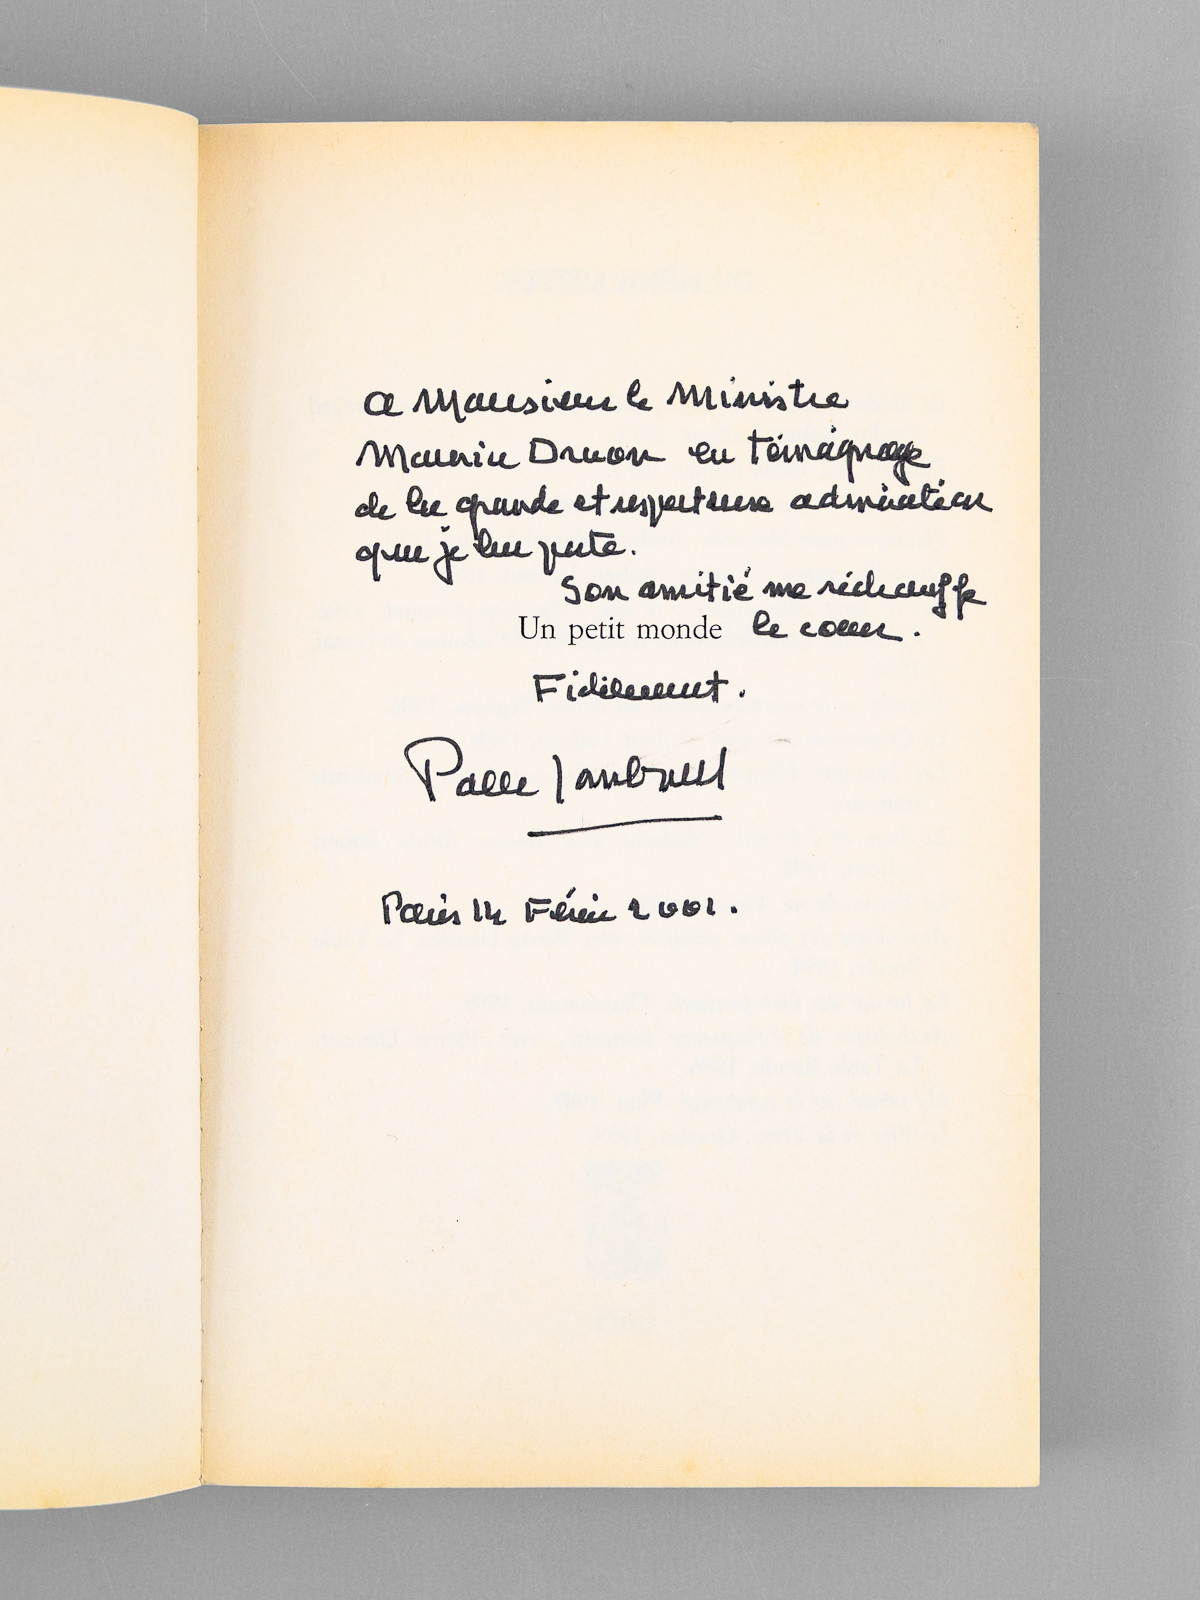 A Monsieur le Ministre
Maurice Druon en témoignage
de la grande et respectueuse admiration
que je lui porte.
Son amitié me réchauffe
Un petit monde le coeur.
Fidèlement.
Paris 14 Février 2001.